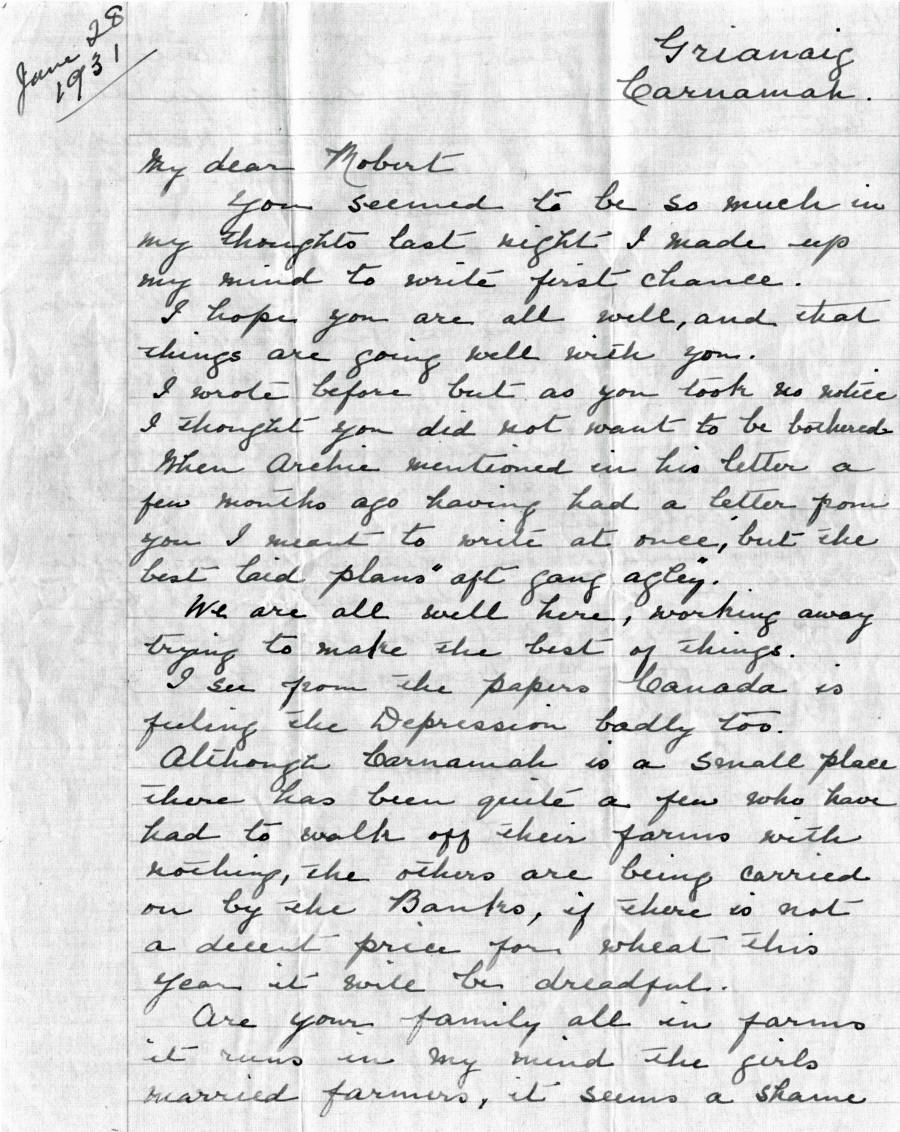 June 28
1931
Grianaig
Carnamah.
My dear Robert
You seemed to be so much in
my thoughts last night I made up
my mind to write first chance.
I hope you are all well, and that
things are going well with you.
I wrote before but as you took no notice
I thought you did not want to be bothered
When Archie mentioned in his letter a
few months ago having had a letter from
you I meant to write at once, but "the
best laid plans" aft gang agley".
We are all well here, working away
trying to make the best of things.
I see from the papers Canada is
feeling the Depression badly too.
Although Carnamah is a small place
there has been quite a few who have
had to walk off their farms with
nothing, the others are being carried
on by the Banks, if there is not
a decent price for wheat this
year it will be dreadful.
Are your family all in farms
it runs in my mind the girls
married farmers, it seems a shame